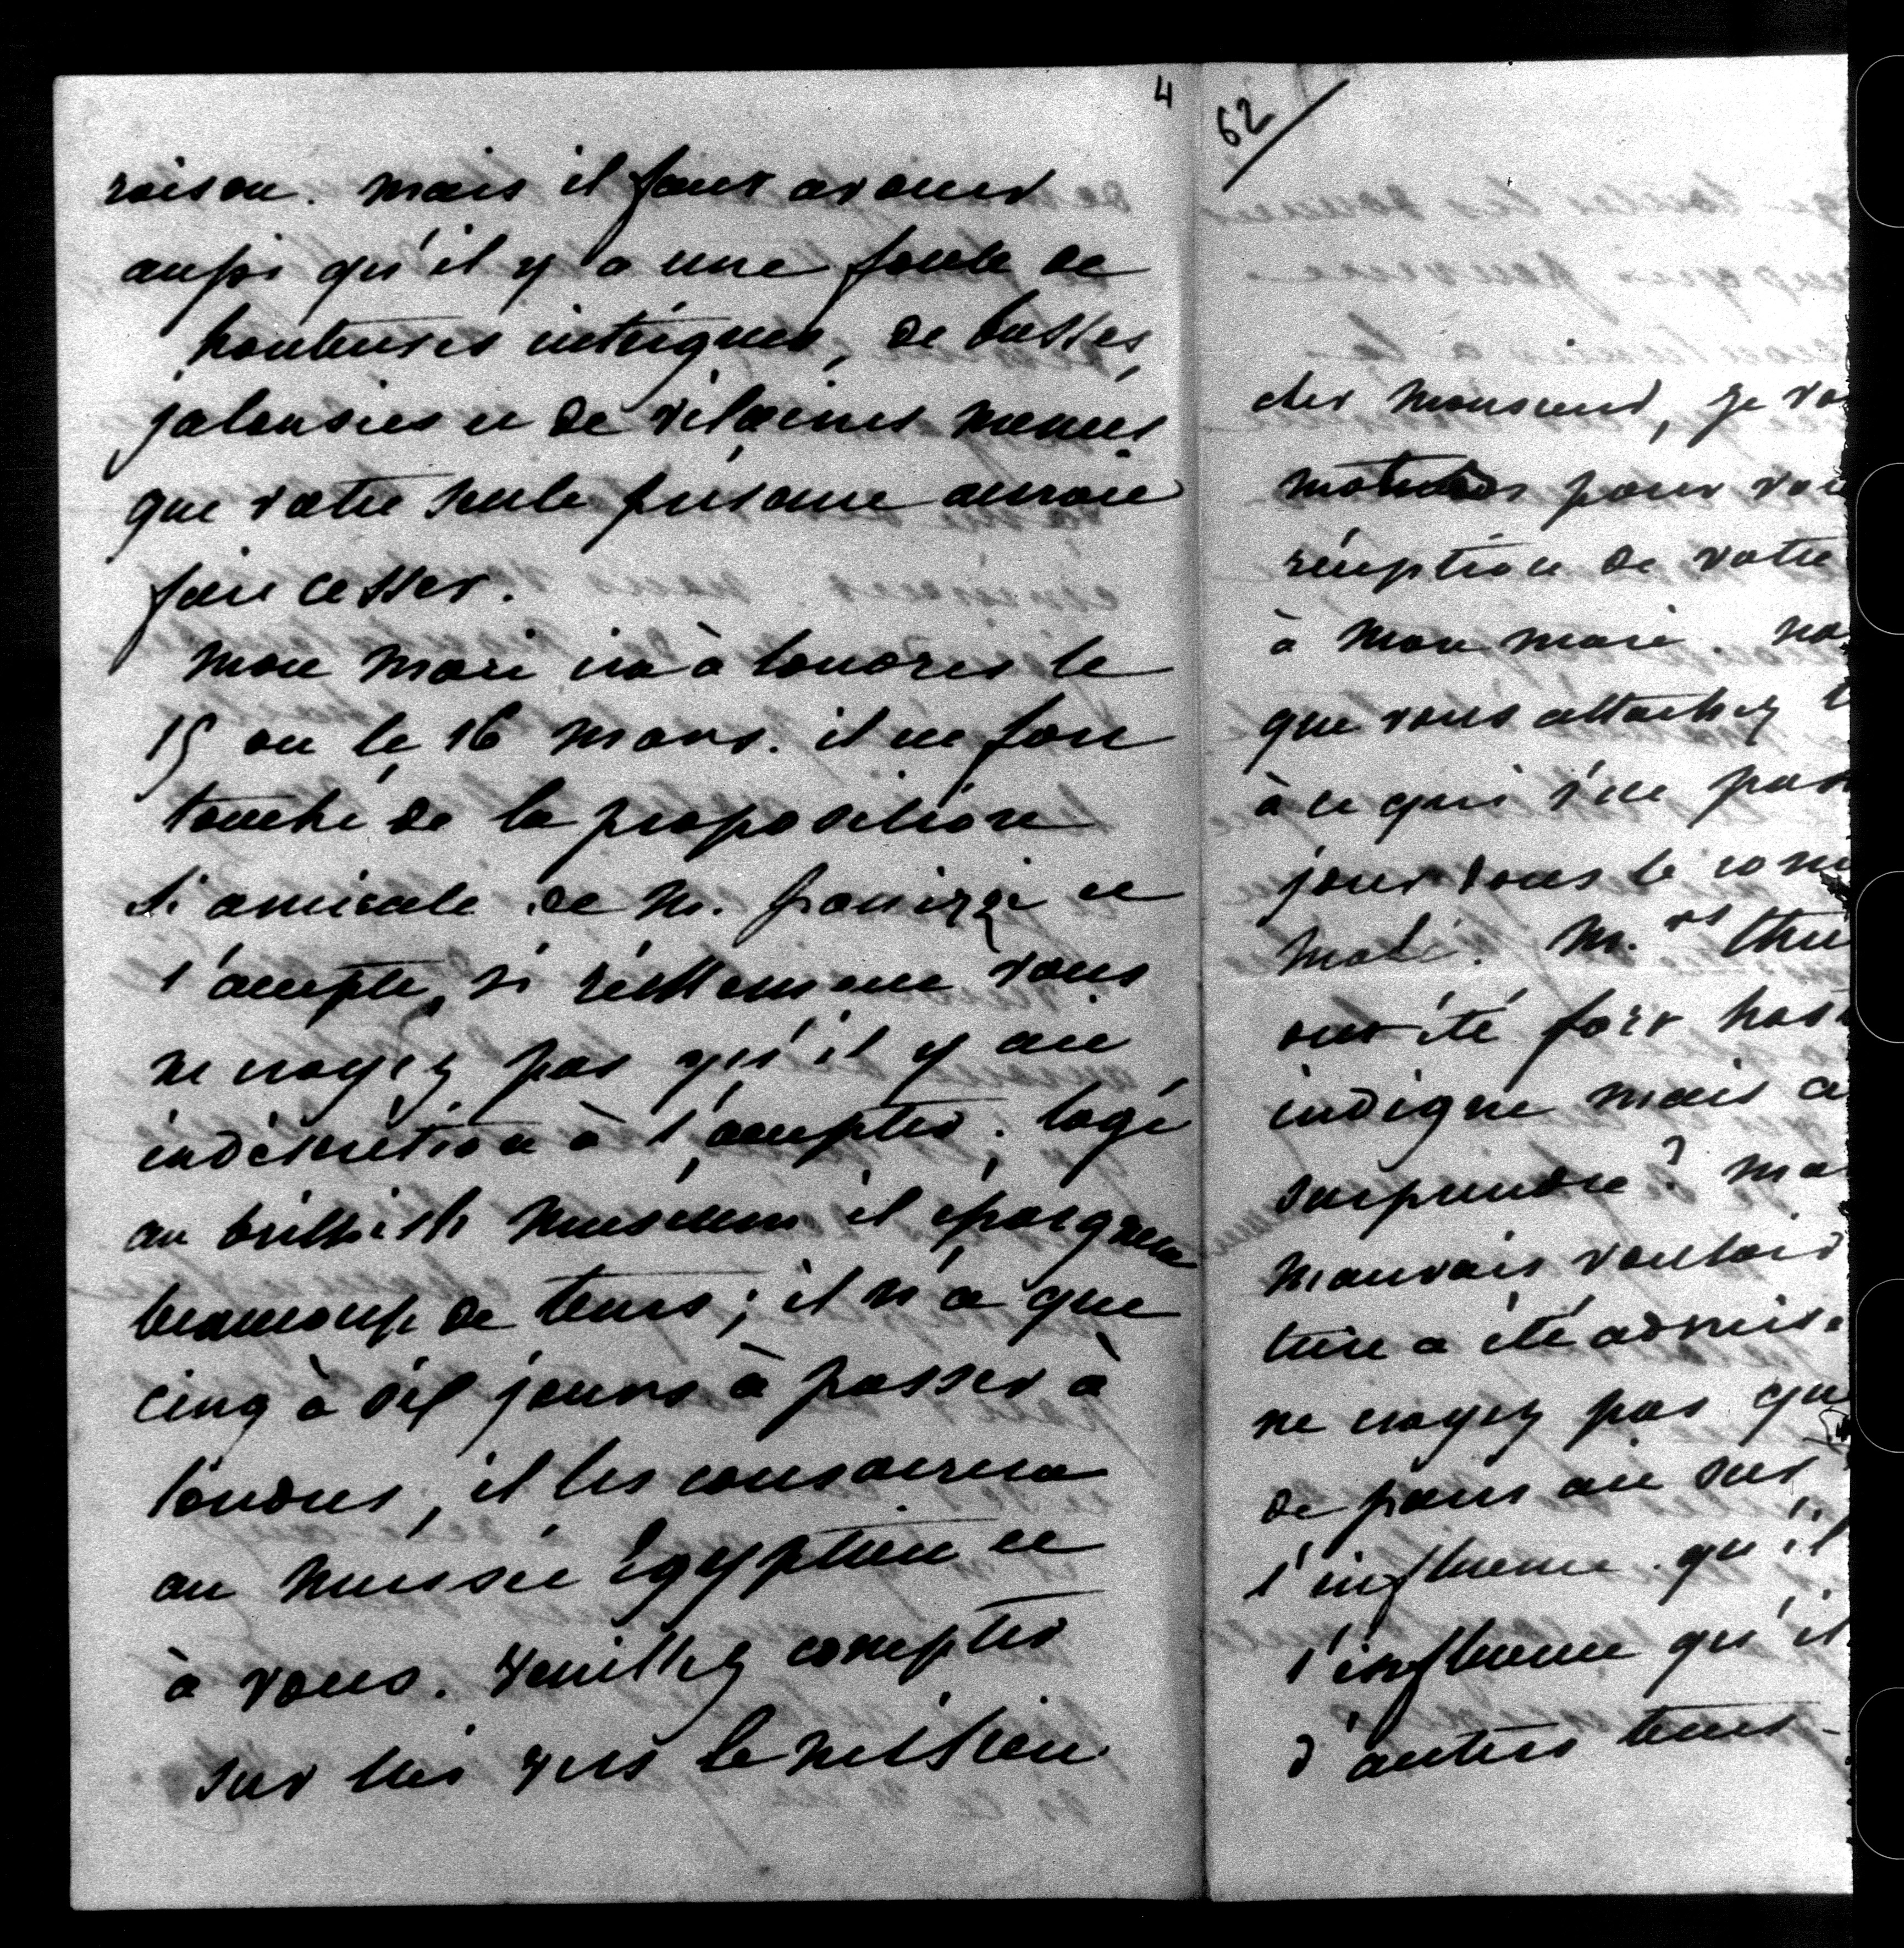 4
raison. mais il faut avouer
aussi qu'il y a une foule de
honteuses intrigues, de basses
jalousies et de vilaines menées
que votre seule présence aurait
fait cesser.
mon mari ira à londres le
15 ou le 16 mars. il est fort
touché de la proposition
si amicale de M. panizzi et
l'accepte, si réellement vous
ne croyez pas qu'il y ait
indiscrétion à l'accepter. logé
au british museum il épargnera
beaucoup de tems; il n'a que
cinq à six jours à passer à
londres, il les consacrera
au musée égyptien et
à vous. veuillez compter
sur lui vers le milieu
62
cher monsieur, je vo
mots pour vou
réception de votre
à mon mari. no
que vous attachez t
à ce qui s'est pas
jour dans le com
M.rs thie
ont été fort hos
indigne mais a
surprendre? ma
mauvais vouloir
ture a été admise
ne croyez pas qu
de paris ait sur
l'influence qu'il
l'influence qu'il
d'autres tems